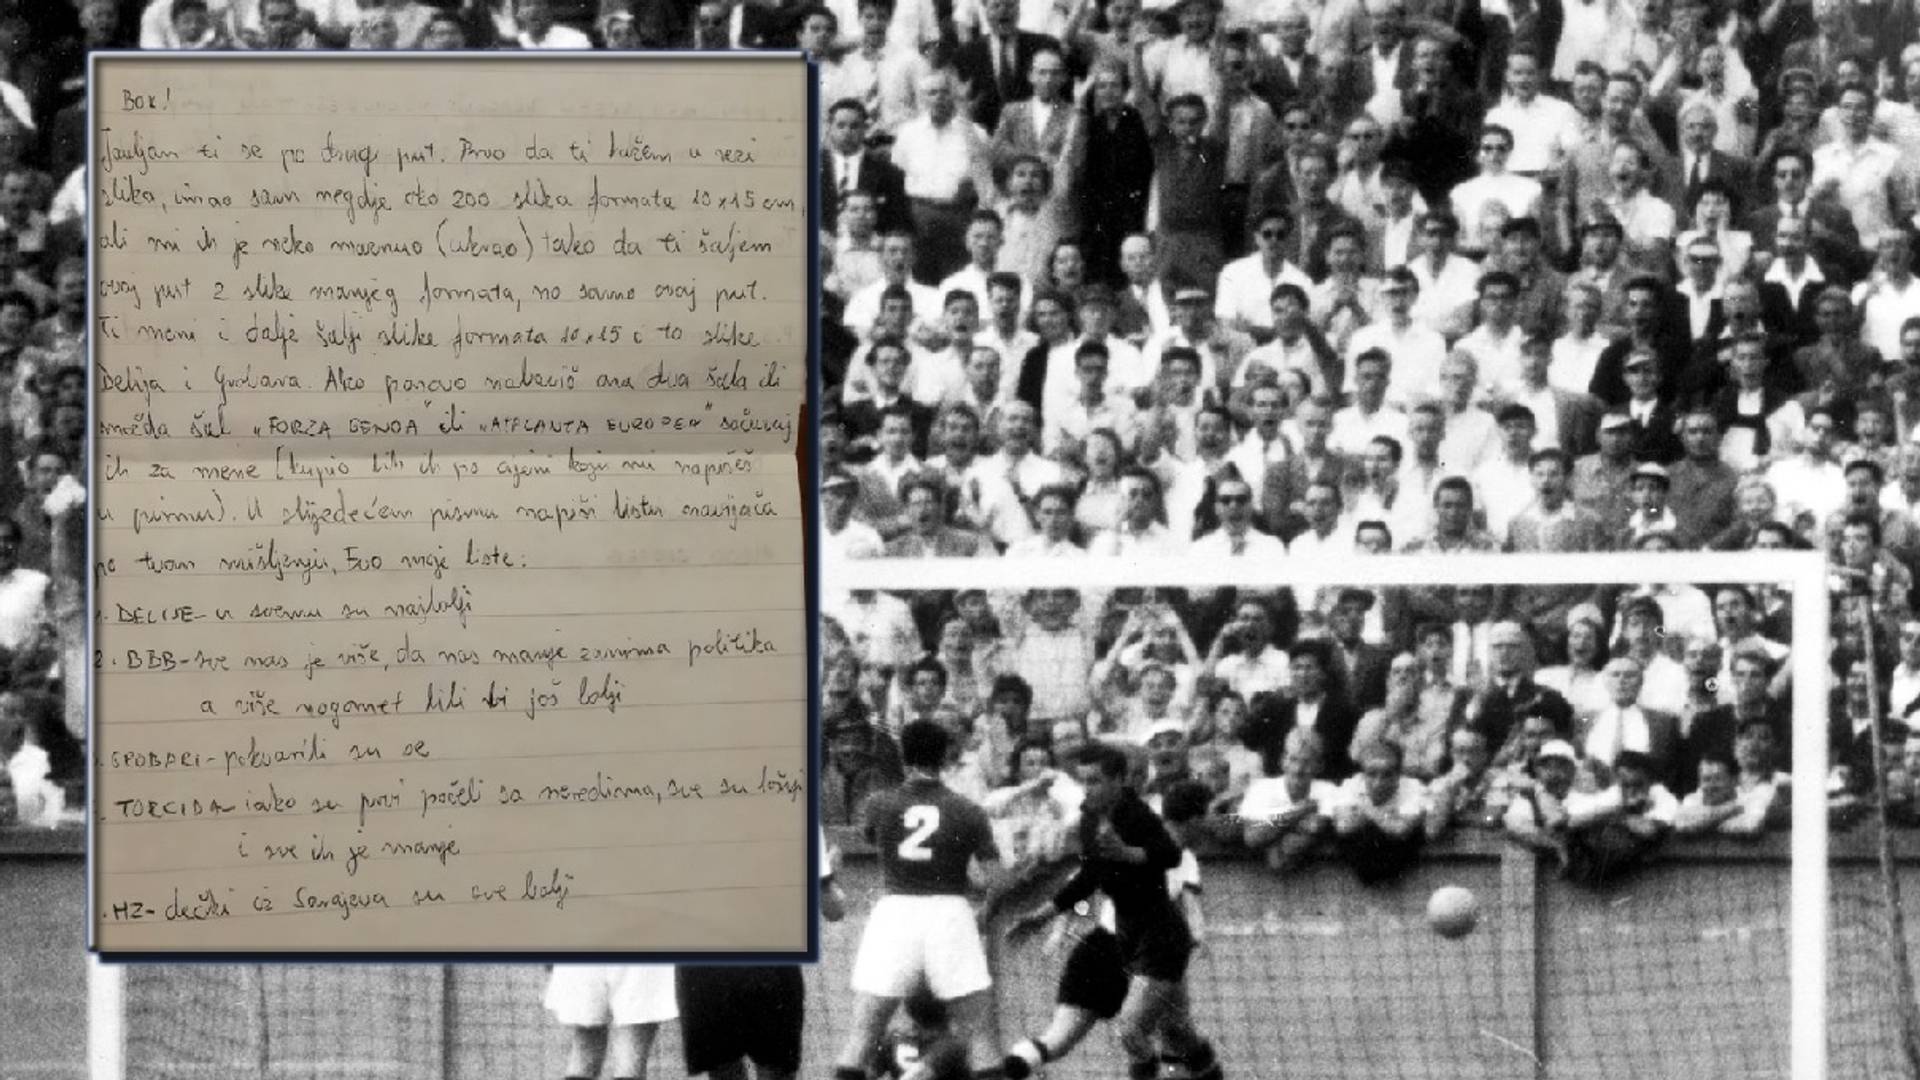 Bok!
Javljam ti se po drugi put. Prvo da ti kažem u vezi
slika, imao sam negdje oko 200 slika formata 10x15 cm,
ali mi ih je neko maznuo (ukrao) tako da ti šaljem
ovaj put 2 slike manjeg formata, no samo ovaj put.
Ti meni i dalje šalji slike formata 10x15 i to slike
Delija i Grobara. Ako ponovo nabaviš ona dva šala ili
možda šal "FORZA GENOA" ili "ATALANTA EUROPEA" sačuvaj
ih za mene (kupio bih ih po cijeni koju mi napišeš
u pismu). U slijedećem pismu napiši listu navijača
po tvom mišljenju, Evo moje liste:
1. DELIJE- u svemu su najbolji
2. BBB-sve nas je više, da nas manje zanima politika
a više nogomet bili bi još bolji
. GROBARI- pokvarili su se
. TORCIDA- iako su prvi počeli sa neredima, sve su lošiji
i sve ih je manje
. HZ- dečki iz Sarajeva su sve bolji
2